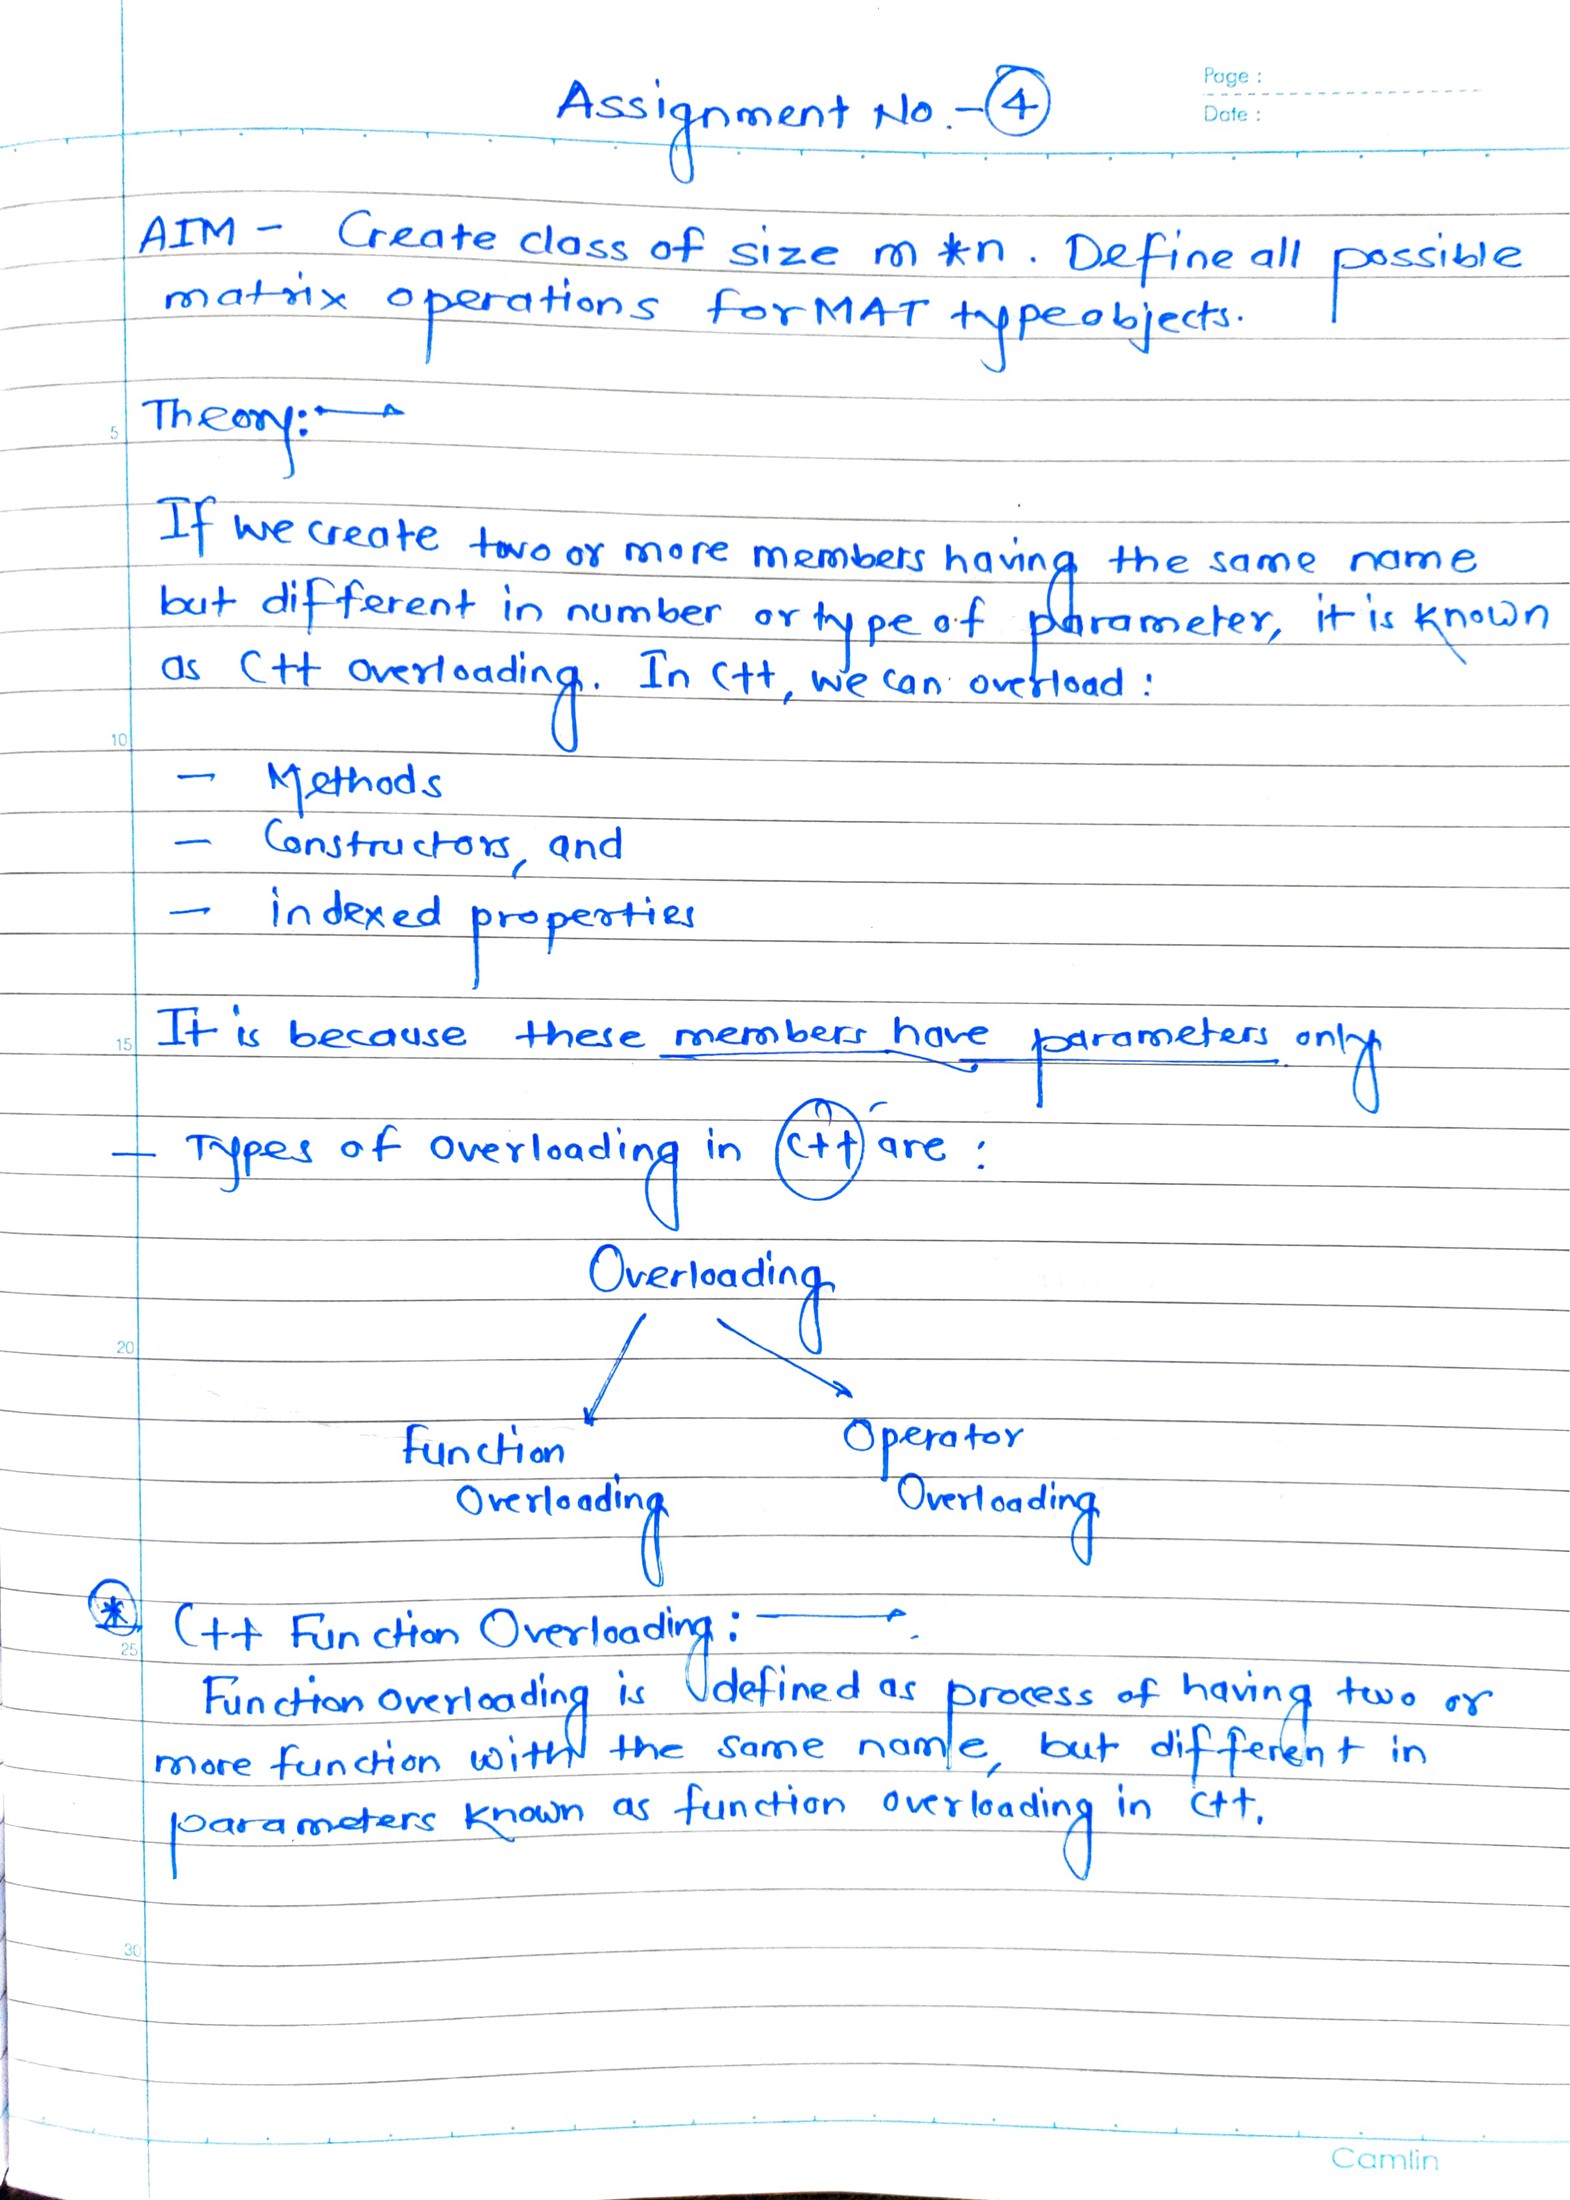 Assignment No.-4
Page :
Date :
AIM - Create class of size m*n. Define all possible
matrix operations for MAT type objects.
Theory:→
5
If we create two or more members having the same name
but different in number or type of parameter, it is known
as C++ overloading. In C++, we can overload :
10
- Methods
- Constructors, and
- indexed properties
15
It is because these members have parameters only
- Types of overloading in C++ are :
Overloading
20
Function Operator
Overloading Overloading
* C++ Function Overloading : →
25
Function overloading is defined as process of having two or
more function with the same name, but different in
parameters known as function overloading in C++.
30
Camlin